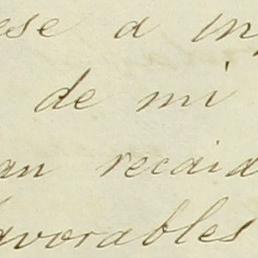 ese a in
de mi
an recaid
avorables